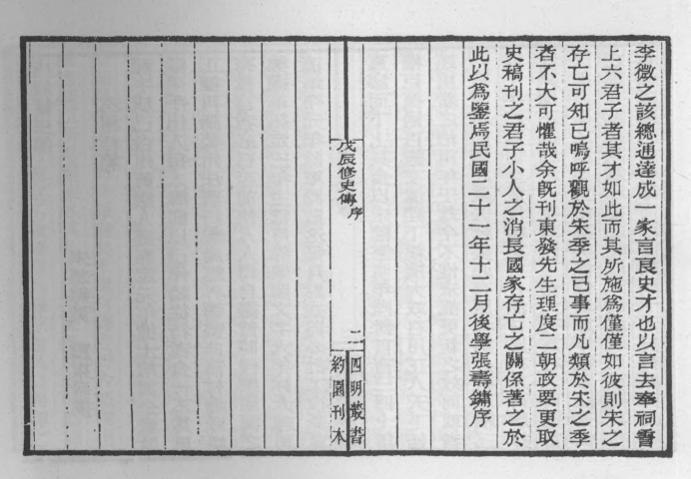 李微之該總通達成一家言良史才也以言去奉祠嘗
上六君子者其才如此而其所施爲僅僅如彼則宋之
存亡可知已嗚呼觀於宋季之已事而凡類於宋之季
者不大可懼哉余旣刊東發先生理度二朝政要更取
史稿刊之君子小人之消長國家存亡之關係著之於
此以爲鑒焉民國二十一年十二月後學張壽鏞序
戊辰修史傳 序
二
四明叢書
約園刊本